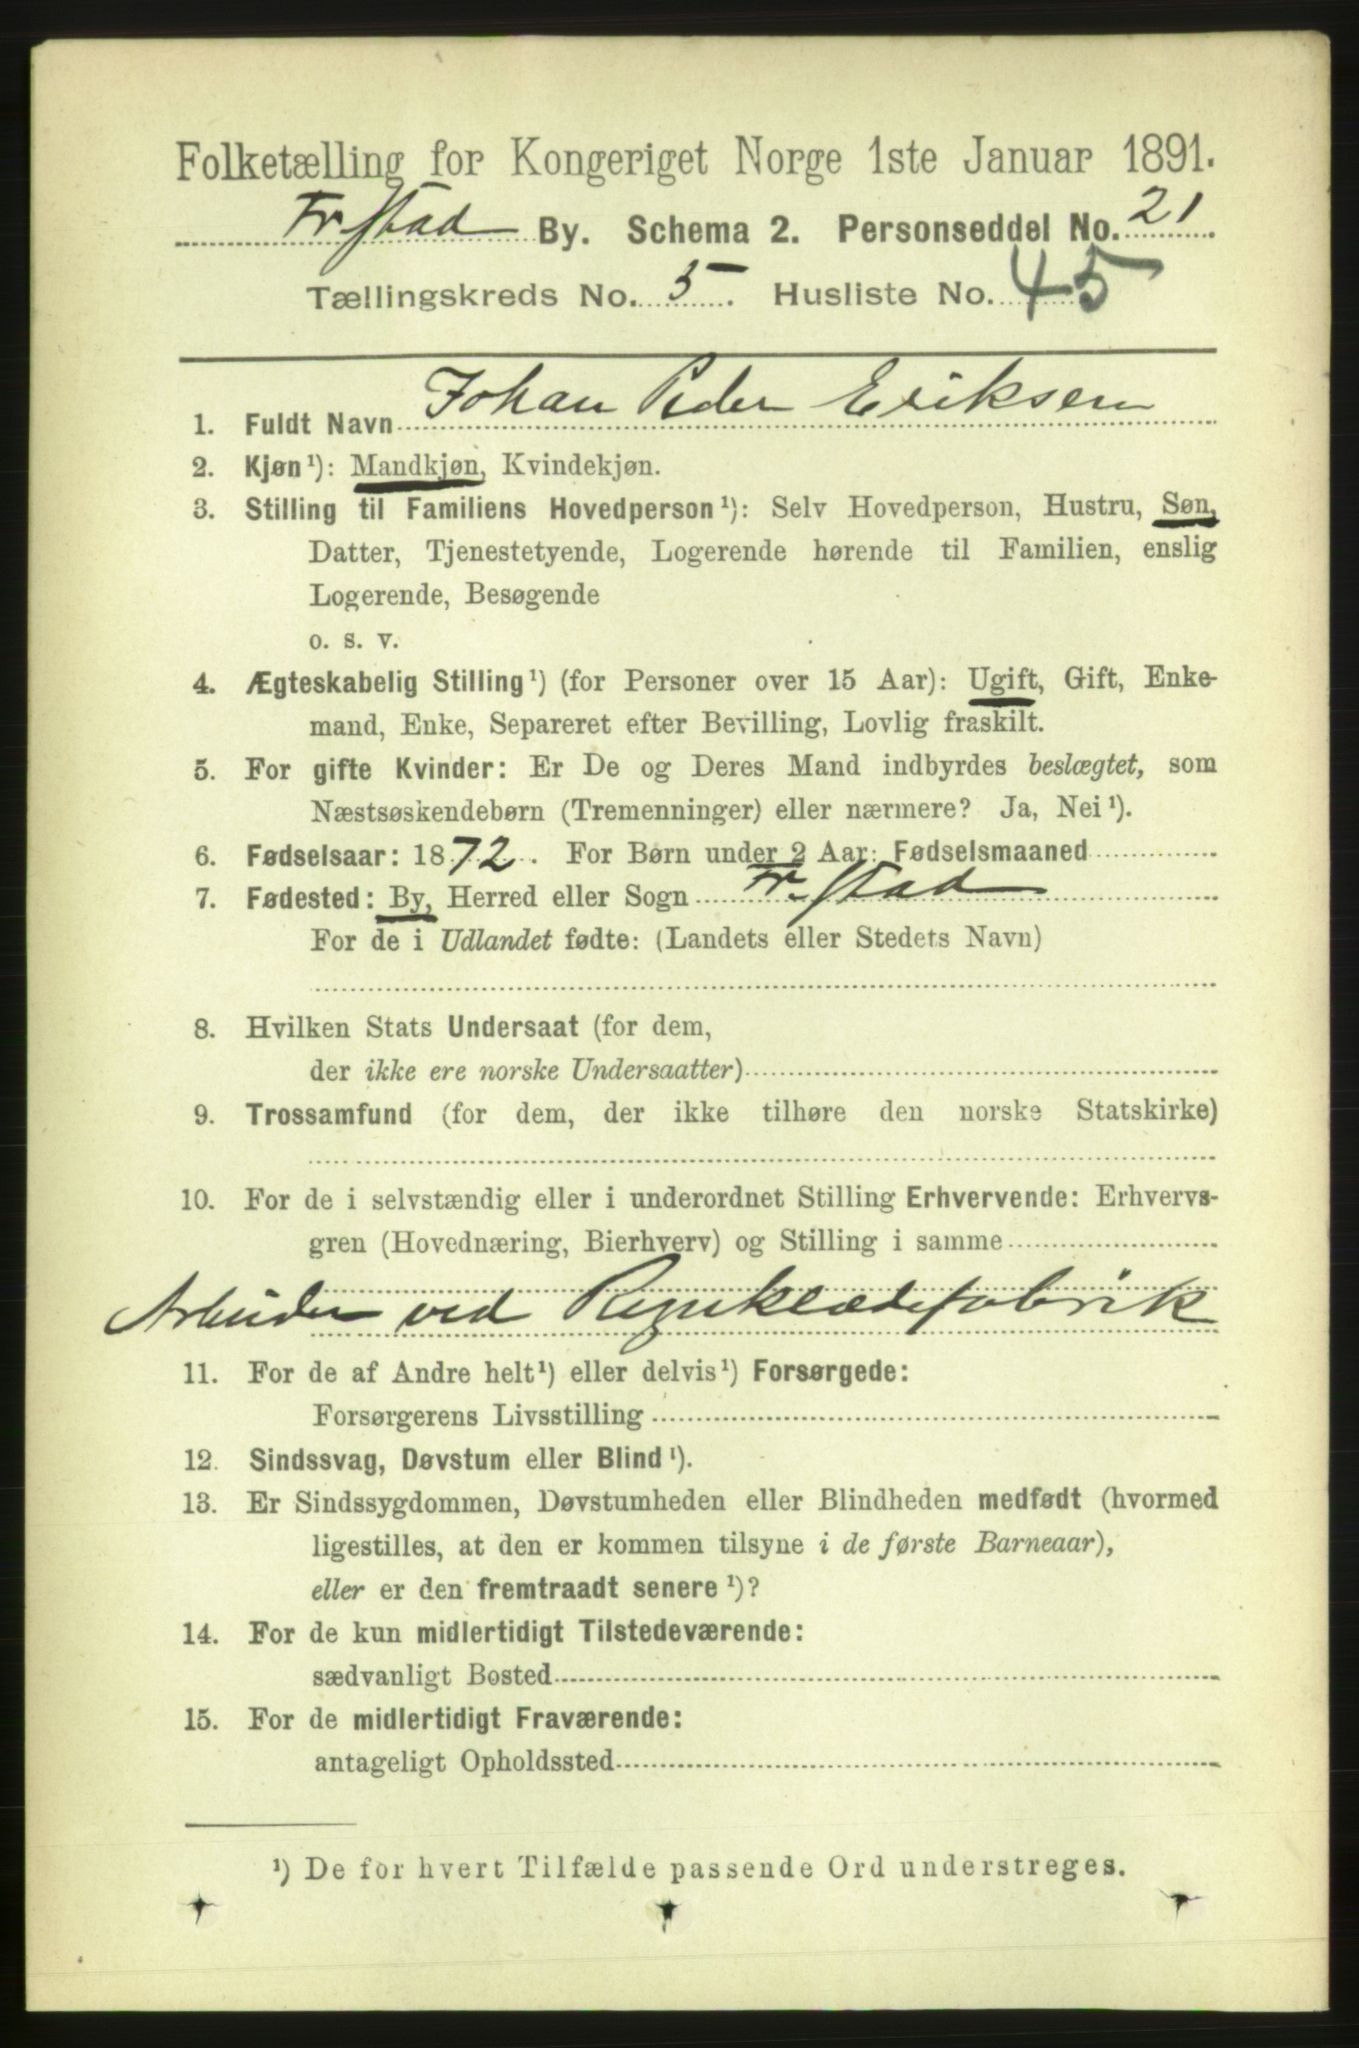 Folketælling for Kongeriget Norge 1ste Januar 1891.
Fr.stad By. Schema 2. Personseddel No. 21
Tællingskreds No. 5. Husliste No. 45
1. Fuldt Navn Johan Peder Eriksen
2. Kjøn¹): Mandkjøn, Kvindekjøn.
3. Stilling til Familiens Hovedperson¹): Selv Hovedperson, Hustru, Søn,
Datter, Tjenestetyende, Logerende hørende til Familien, enslig
Logerende, Besøgende
o. s. v.
4. Ægteskabelig Stilling¹) (for Personer over 15 Aar): Ugift, Gift, Enke-
mand, Enke, Separeret efter Bevilling, Lovlig fraskilt.
5. For gifte Kvinder: Er De og Deres Mand indbyrdes beslægtet, som
Næstsøskendebørn (Tremenninger) eller nærmere? Ja, Nei¹).
6. Fødselsaar: 1872. For Børn under 2 Aar: Fødselsmaaned
7. Fødested: By, Herred eller Sogn Fr.stad
For de i Udlandet fødte: (Landets eller Stedets Navn)
8. Hvilken Stats Undersaat (for dem,
der ikke ere norske Undersaatter)
9. Trossamfund (for dem, der ikke tilhøre den norske Statskirke)
10. For de i selvstændig eller i underordnet Stilling Erhvervende: Erhvervs-
gren (Hovednæring, Bierhverv) og Stilling i samme
Arbeider ved Regnklædefabrik
11. For de af Andre helt¹) eller delvis¹) Forsørgede:
Forsørgerens Livsstilling
12. Sindssvag, Døvstum eller Blind¹).
13. Er Sindssygdommen, Døvstumheden eller Blindheden medfødt (hvormed
ligestilles, at den er kommen tilsyne i de første Barneaar),
eller er den fremtraadt senere¹)?
14. For de kun midlertidigt Tilstedeværende:
sædvanligt Bosted
15. For de midlertidigt Fraværende:
antageligt Opholdssted
¹) De for hvert Tilfælde passende Ord understreges.